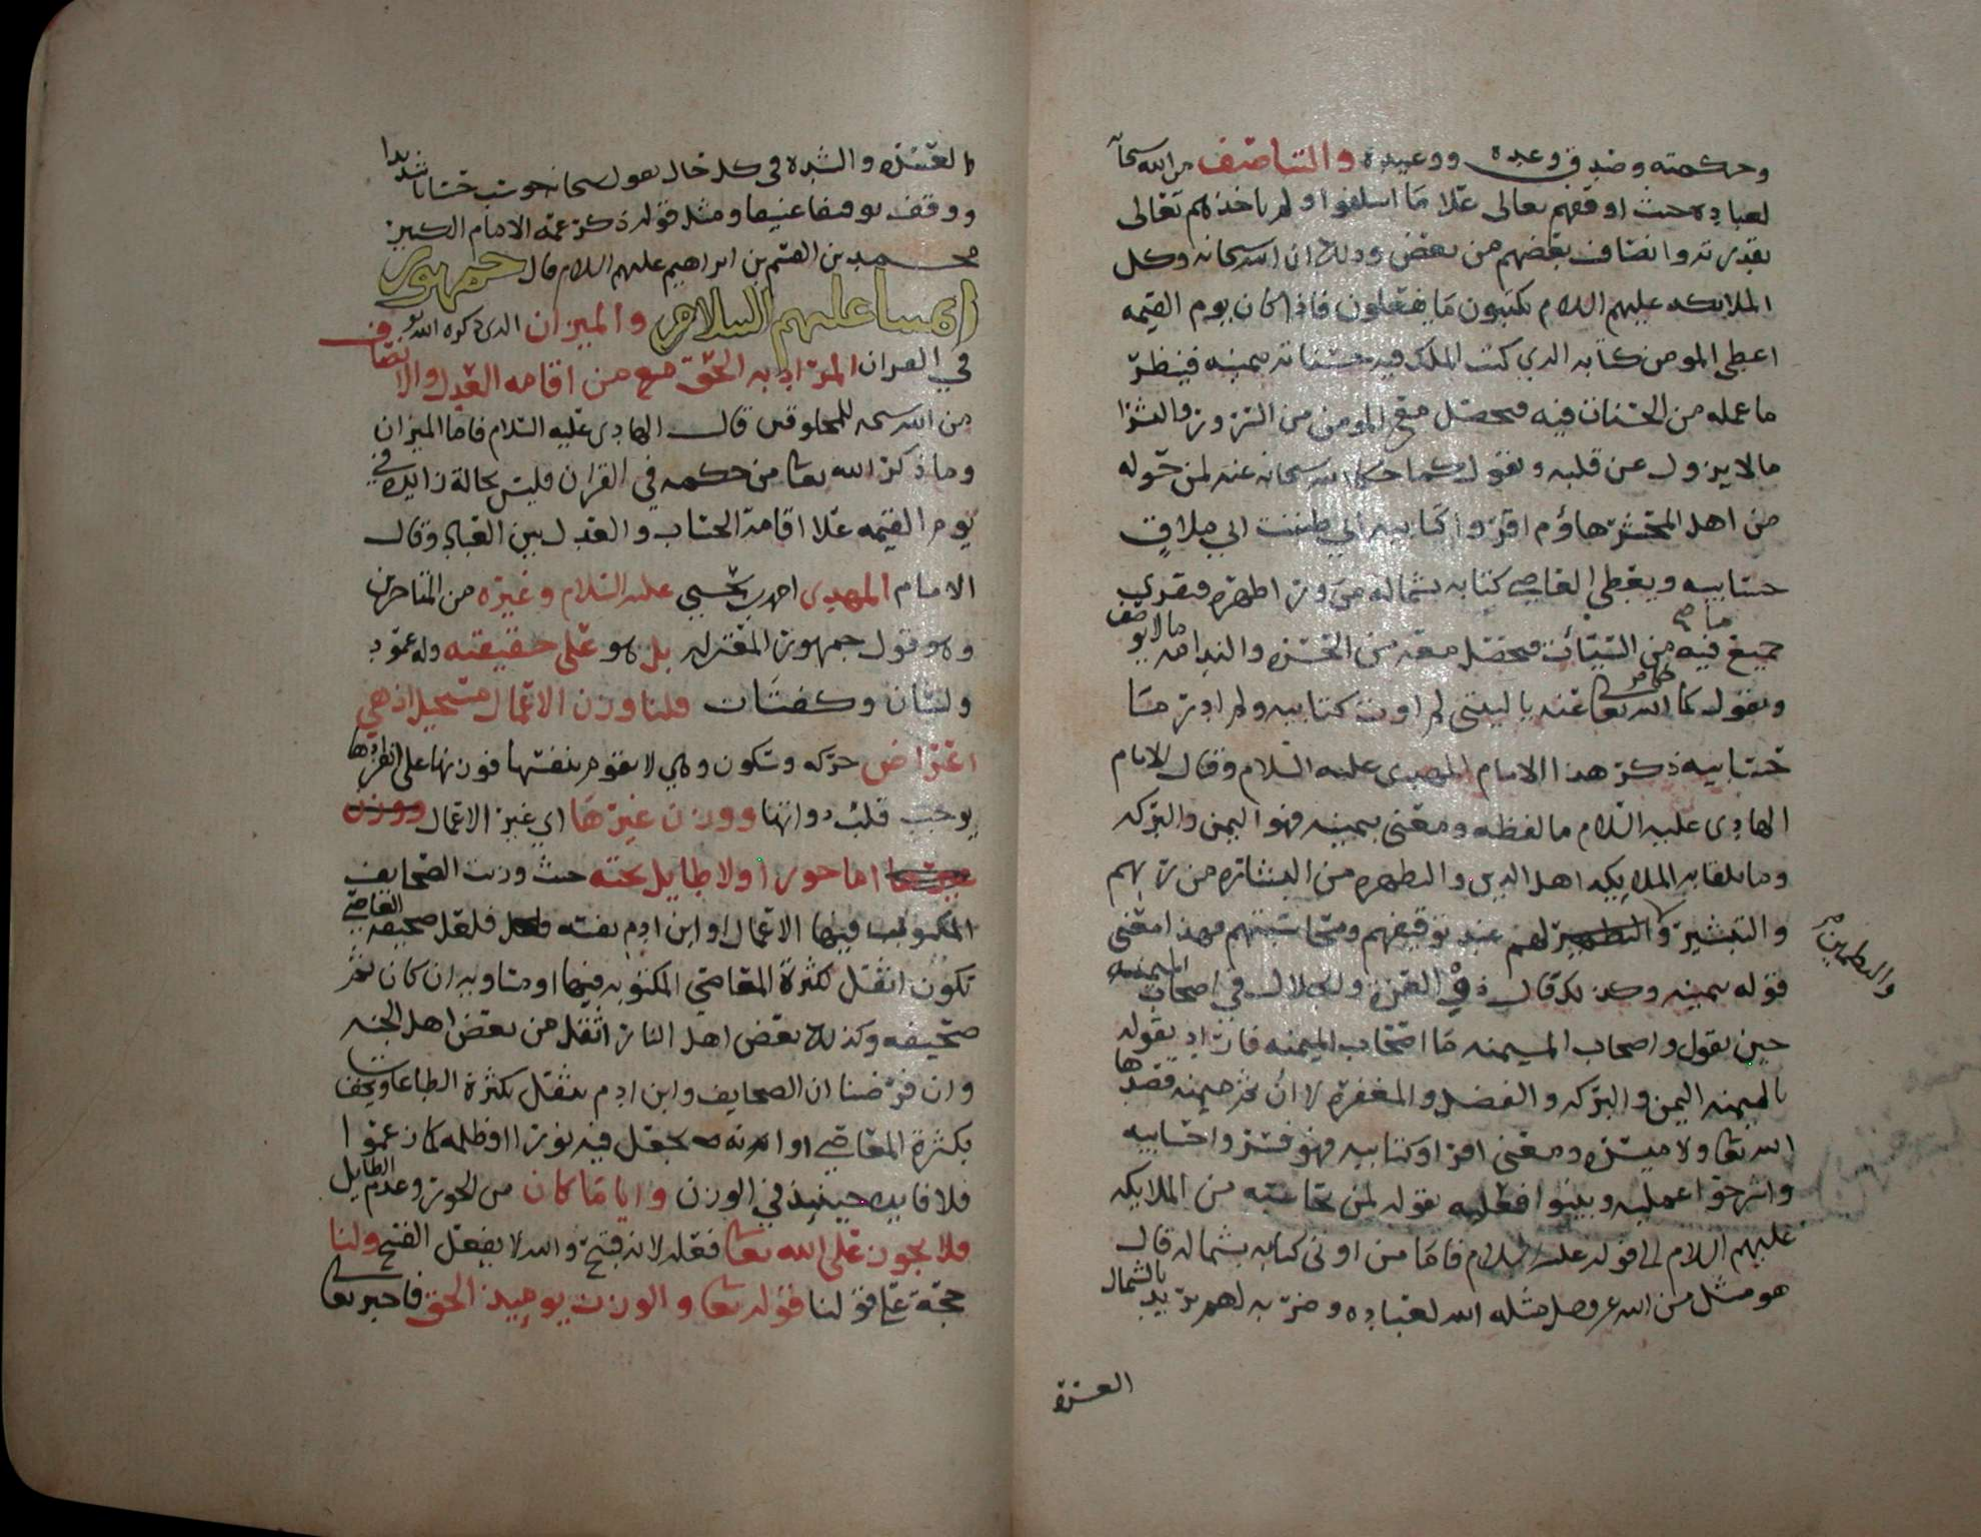 وحكمته وصدق وعده ووعيده والتناصف من الله سبحانه
لعباده حيث اوقفهم تعالى علا ما اسلفوا ولم ياخذهم تعالى
بقدرته وانصاف بعضهم من بعض وذلك ان الله سبحانه وكل
الملايكه عليهم السلام يكتبون ما يفعلون فاذا كان يوم القيمه
اعطى المومن كتابه الذي كتب الملك فيه حسناته بيمينه فينظر
ما عمله من الحسنات فيه فيحصل مع المومن من السرور والبشرا
مالا يزول عن قلبه ويقول كما حكا الله سبحانه عنه لمن حوله
من اهل المحشر هاؤم اقروا كتابيه اني ظننت اني ملاق
حسابيه ويعطى العاصي كتابه بشماله من ورا ظهره فيقرى
جميع ما فيه من السيئات فيحصل معه من الحسره والندامه مالا يوصف
ويقول كما حكا الله تعا عنه ياليتني لم اوت كتابيه ولم ادر ما
حسابيه ذكر هذا الامام المهدي عليه السلام وقال الامام
الهادي عليه السلام ما لفظه ومعنى بيمينه فهو اليمن والبركه
وما تلقا به الملايكه اهل الدين والطهره من البشاره من ربهم
والتبشير والتطمين لهم عند توقيفهم ومحاسبتهم فهذا معنى
قوله بيمينه وكذلك قال ذو العزه والجلال في اصحاب الميمنه
حين يقول واصحاب الميمنه ما اصحاب الميمنه فاراد بقوله
بالميمنه اليمن والبركه والفضل والمغفره لا ان ثم ميمنه قصدها
الله تعا ولا ميسره ومعنى اقراوا كتابيه فهو فسروا حسابيه
واشرحوا عمليه وبينوا فعليه بقوله لمن يحاسبه من الملايكه
عليهم السلام الى قوله عليه السلام فاما من اوتى كتابه بشماله قال
هو مثل من الله عز وجل مثله الله لعباده وضربه لهم يريد بالشمال
العسره
العسره والشده في كل حال يقول سبحانه حوسب حسابا شديدا
ووقف توقيفا عنيفا ومثل قوله ذكر عمه الامام الكبير
محمد بن القسم بن ابراهيم عليهم السلام قال جمهور
ائمتنا عليهم السلام والميزان الذي ذكره الله تعا
في القران المراد به الحق مع من اقامه العدل والانصاف
من الله سبحنه للمخلوقين قال الهادي عليه السلام فاما الميزان
وما ذكر الله تعا من حكمه في القران فليس بحالة زايده في
يوم القيمه علا اقامة الحساب والعدل بين العباد وقال
الامام المهدي احمد بن يحيى عليه السلام وغيره من المتاخرين
وهو قول جمهور المعتزله بل هو على حقيقته وله عمود
ولسان وكفتان قلنا وزن الاعمال مستحيل اذ هي
اعراض حركه وسكون وهي لا تقوم بنفسها فوزنها على انفرادها
يوجب قلب ذواتها ووزن غيرها اي غير الاعمال
اما جور او لا طايل تحته حيث وزنت الصحايف
المكتوب فيها الاعمال او ابن ادم نفسه فلعل صحيفه العاصي
تكون اثقل لكثرة المعاصي المكتوبه فيها او مساويه ان كان ثم
صحيفه وكذلك بعض اهل النار اثقل من بعض اهل الجنه
وان فرضنا ان الصحايف وابن ادم يثقل بكثرة الطاعات ويخف
بكثرة المعاصي او انه يجعل فيه نورا او ظلمه كما زعموا
فلا فايده حينيذ في الوزن وايا ما كان من الجور وعدم الطايل
فلا يجوز على الله تعا فعله لانه قبيح والله لا يفعل القبيح ولنا
حجة على قولنا قوله تعا والوزن يوميذ الحق فاخبر تعا